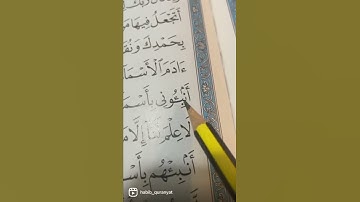 أَتَجْعَلُ فِيهَا
بِحَمْدِكَ وَنُقَ
ءَادَمَ الْأَسْمَا
أَنۢبِـُٔونِى بِأَسْمَ
لَا عِلْمَ لَنَآ إِلَّا مَ
أَنۢبِئْهُم بِأَسْ
habib_quranyat